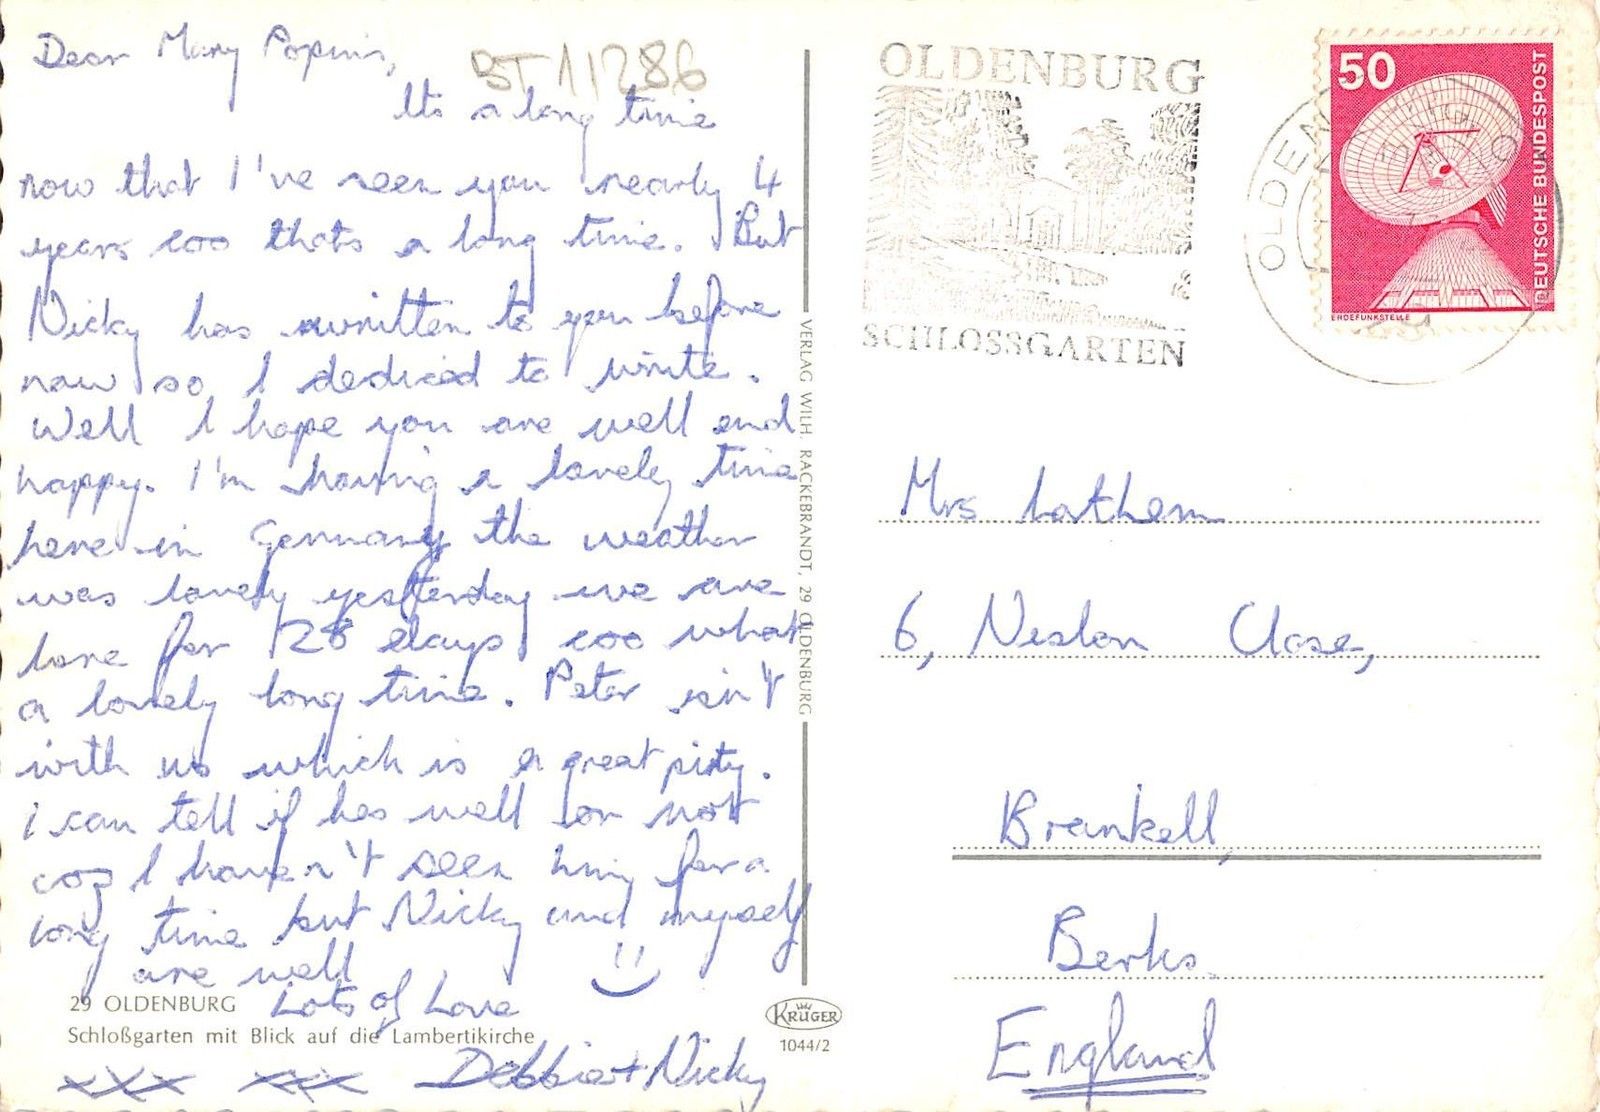 Dear Mary Popins,
Its a long time
now that I've seen you nearly 4
years coo thats a long time. But
Nicky has written to you before
now so I dediced to write.
Well I hope you are well and
happy. I'm having a lovely time
here in Germany the weather
was lovely yesterday we are
here for 28 days coo what
a lovely long time. Peter isn't
with us which is a great pity.
i can tell if hes well or not
coz I haven't seen him for a
long time but Nicky and myself
are well
Lots of Love
Debbie + Nicky
xxx xxx
BT11286
29 OLDENBURG
Schloßgarten mit Blick auf die Lambertikirche
VERLAG WILH. RACKEBRANDT, 29 OLDENBURG
KRÜGER
1044/2
OLDENBURG
SCHLOSSGARTEN
50
DEUTSCHE BUNDESPOST
ERDEFUNKSTELLE
Mrs Lathem
6, Neston Close,
Brankell,
Berks.
England